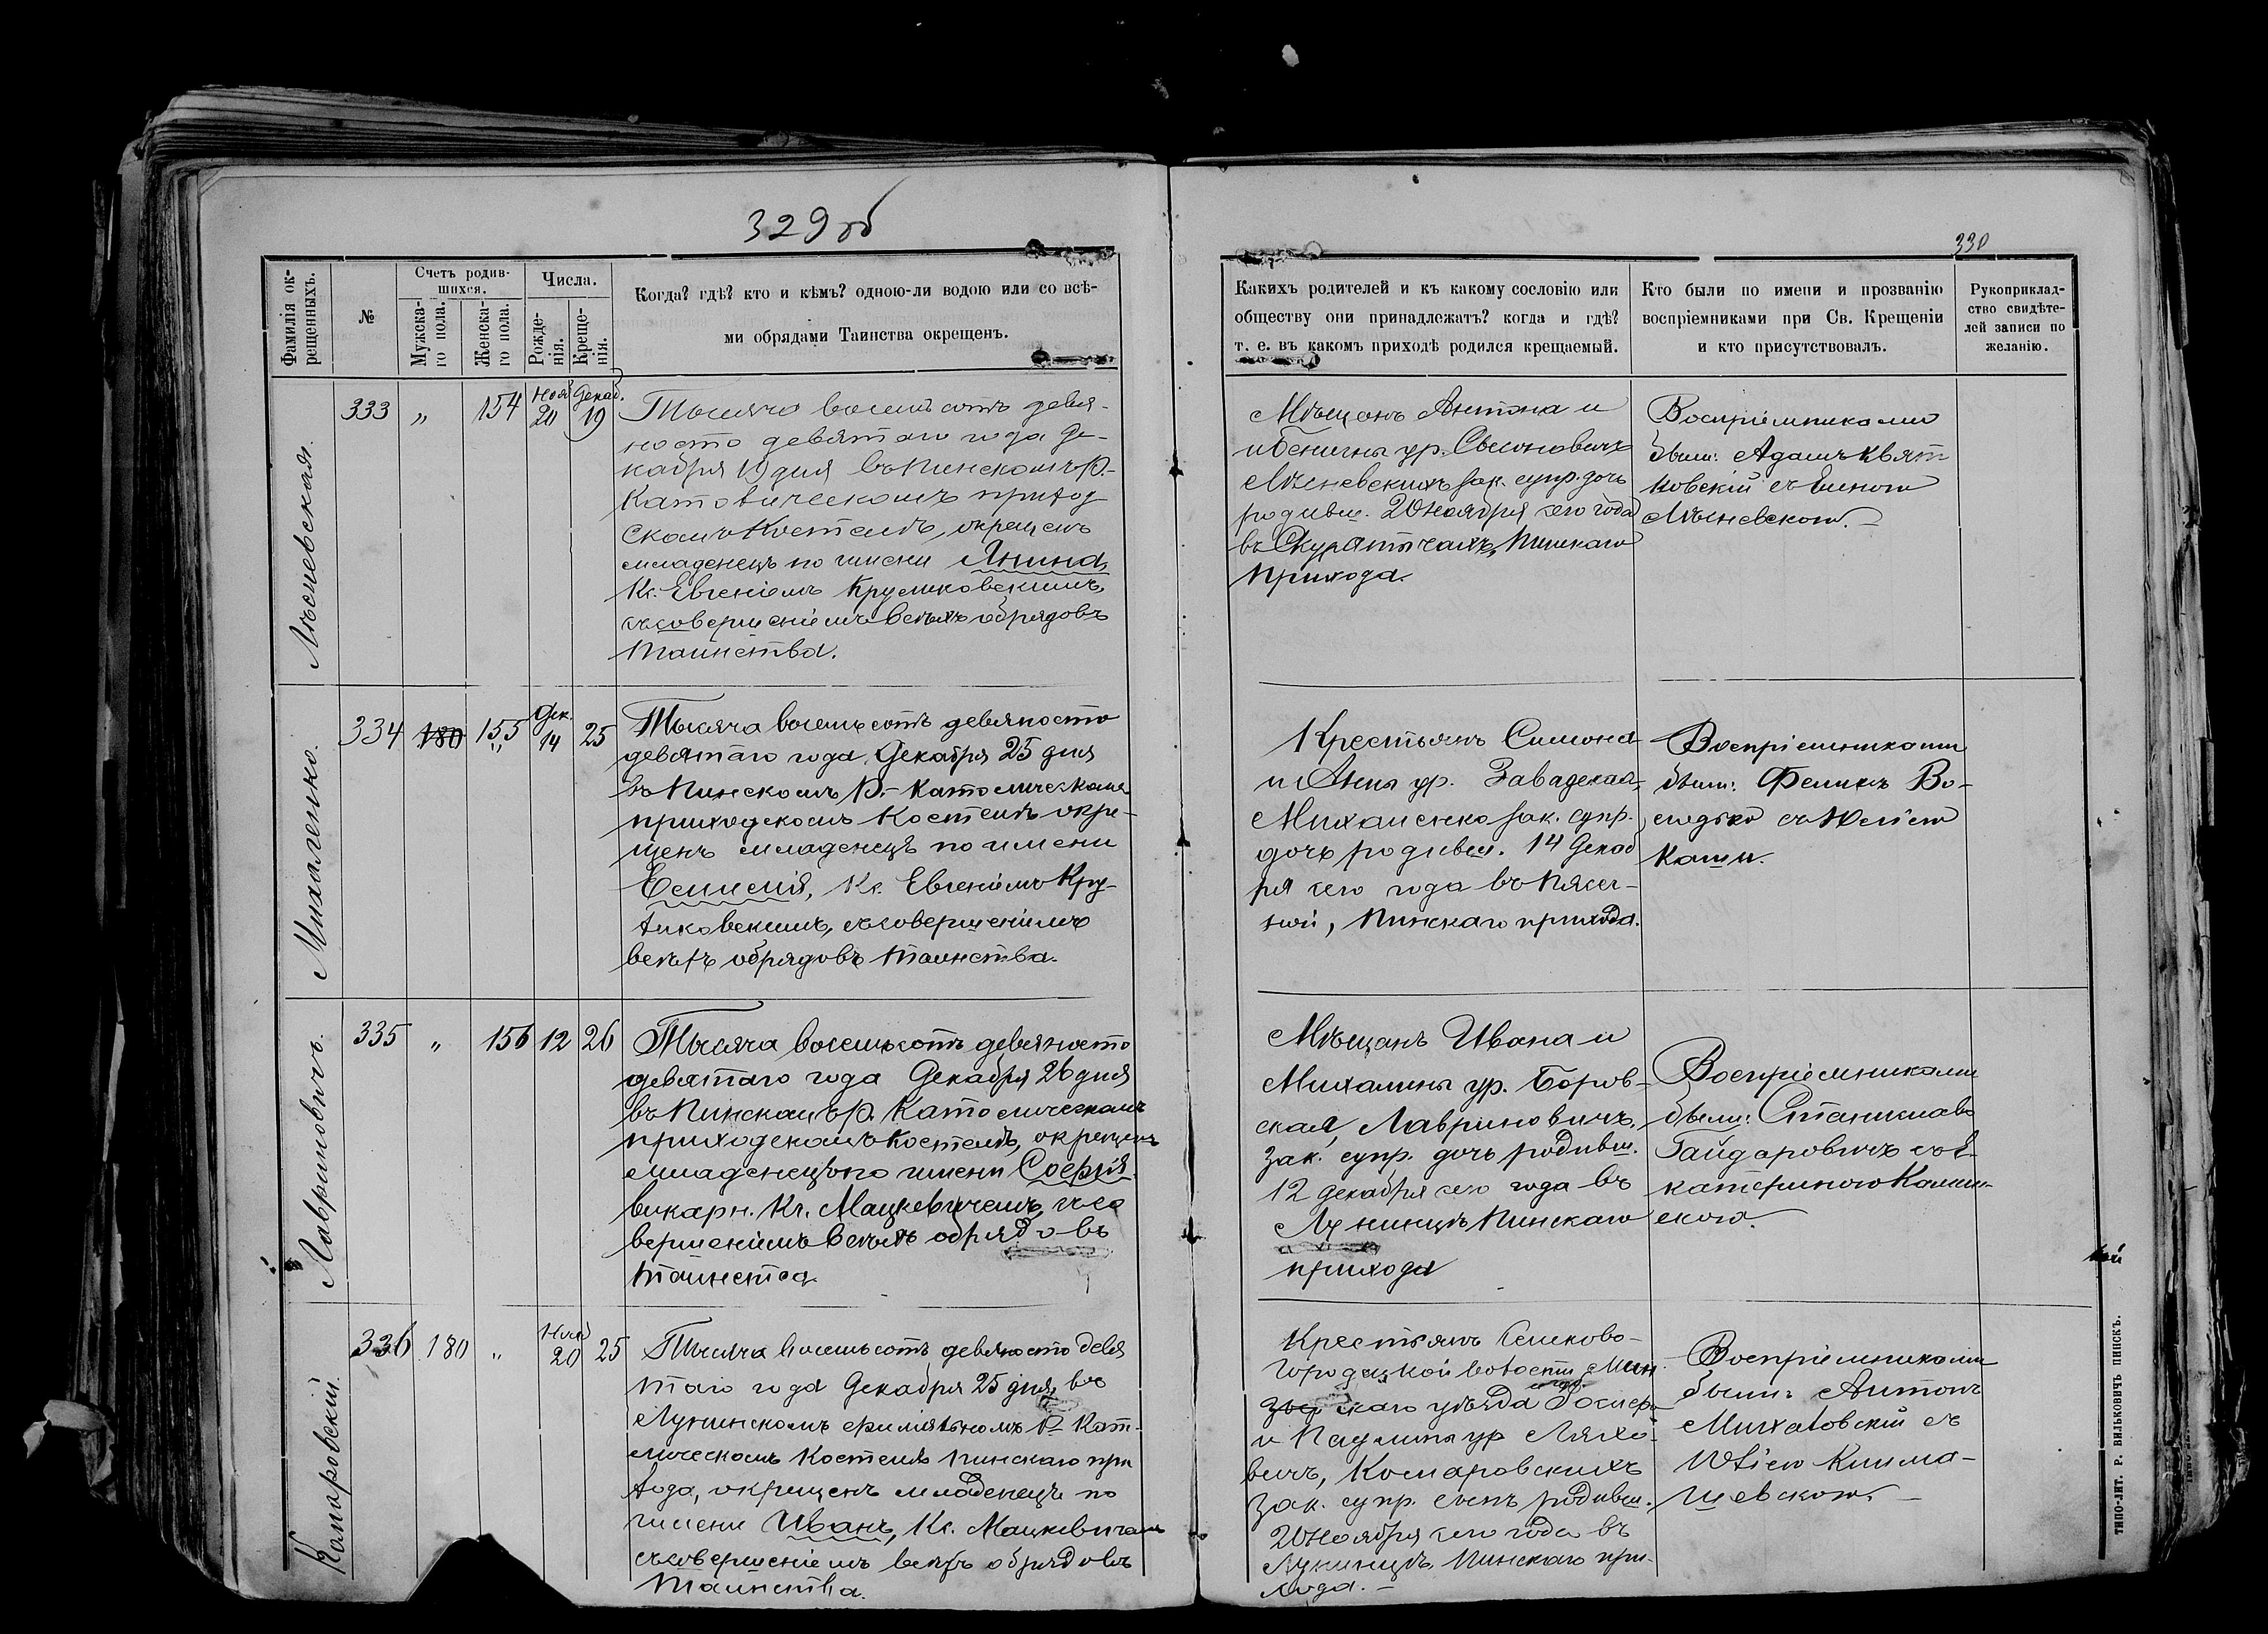 329 об
Фамилія ок-
рещенныхъ.
№
Счетъ родив-
шихся.
Мужска-
го пола.
Женска-
го пола.
Числа.
Рожде-
нія.
Креще-
нія.
Когда? гдѣ? кто и кѣмъ? одною-ли водою или со всѣ-
ми обрядами Таинства окрещенъ.
Лѣсневская.
333 „ 154 Нояб 20 Декаб. 19
Тысяча восемьсотъ девя-
носто девятаго года Де-
кабря 19 дня въ Пинскомъ Р.-
Католическомъ приход
скомъ Костелѣ, окрещенъ
младенецъ по имени Янина,
Кс. Евгеніемъ Крумковскимъ,
съ совершеніемъ всѣхъ обрядовъ
Таинства.
Михаленко.
334 180 155 „ Дек. 14 25
Тысяча восемьсотъ девяносто
девятаго года, Декабря 25 дня
въ Пинскомъ Р.-Католическомъ
приходскомъ Костелѣ окре-
щенъ младенецъ по имени
, Кс. Евгеніемъ Кру-
ковскимъ, съ совершеніемъ
всѣхъ обрядовъ Таинства.
Лавриновичъ.
335 „ 156 12 26
Тысяча восемьсотъ девяносто
девятаго года Декабря 26 дня
въ Пинскомъ Р. Католическомъ
приходскомъ Костелѣ, окрещенъ
младенецъ по имени Софія
викарн. Кс. Мацкевичемъ, съ со
вершеніемъ всѣхъ обрядовъ
Таинства
Комаровскій.
336 180 „ Нояб 20 25
Тысяча восемьсотъ девяносто девя
таго года Декабря 25 дня, въ
Лунинскомъ филіяльномъ Р. Кат-
лическомъ Костелѣ Пинскаго при
хода, окрещенъ младенецъ по
имени Иванъ, Кс. Мацкевичемъ
съ совершеніемъ всѣхъ обрядовъ
Таинства.
330
Какихъ родителей и къ какому сословію или
обществу они принадлежатъ? когда и гдѣ?
т. е. въ какомъ приходѣ родился крещаемый.
Кто были по имени и прозванію
воспріемниками при Св. Крещеніи
и кто присутствовалъ.
Рукоприклад-
ство свидѣте-
лей записи по
желанію.
Мѣщанъ Антона и
и Бенигны ур.
Лѣсневскихъ зак. супр. дочь
родивш. 20 Ноября сего года
въ Скуратичахъ, Пинскаго
прихода.
Воспріемниками
были: Адамъ Квят
ковскій съ Еленою
Лѣсневскою.
Крестьянъ Симона
и Анны ур. Завадская,
Михаленко зак. супр.
дочь родивш. 14 Декаб
ря сего года въ
ной, Пинскаго прихода.
Воспріемниками
были: Феликсъ Во-
лодько съ Юліею
Мѣщанъ Ивана и
Михалины ур. Боров-
ская, Лавриновичъ,
зак. супр. дочь родивш.
12 декабря сего года въ
Лунинцѣ, Пинскаго
прихода
Воспріемниками
были: Станиславъ
Гайдаровичъ съ Е-
катериною Камин-
скою.
Крестьянъ Семково-
Городецкой волости Мин
скаго уѣзда
и Паулины ур
вичъ, Комаровскихъ
зак. супр. сынъ родивш.
20 Ноября сего года въ
Лунинцѣ, Пинскаго при-
хода.
Воспріемниками
были: Антонъ
Михаловскій съ
Юліею Клима-
шевскою.
ТИПО-ЛИТ. Р. ВИЛЬКОВИЧЪ ПИНСКЪ.